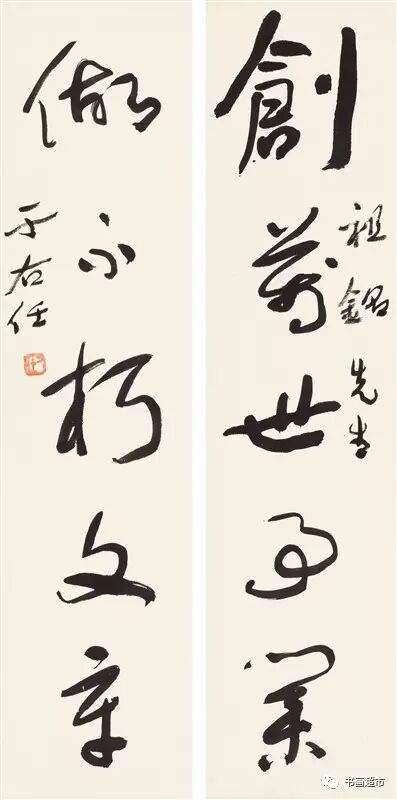 創萬世事業
祖 先生
做不朽文章
于右任
书画超市